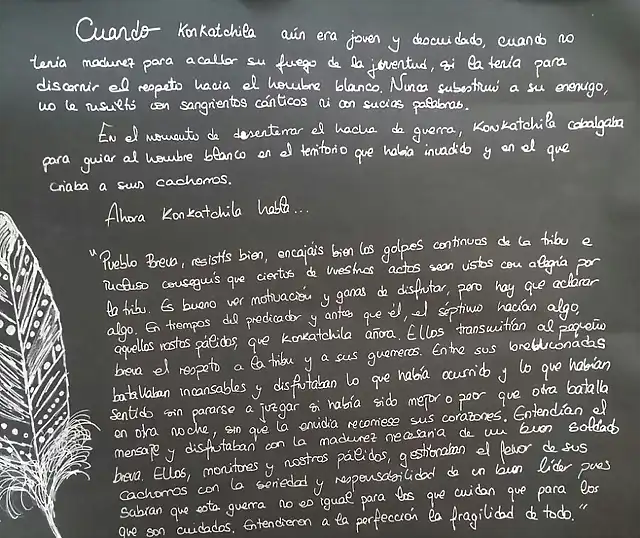 Cuando Konkatchila aún era joven y descuidado, cuando no
tenía madurez para acallar su fuego de la juventud, si la tenía para
discernir el respeto hacia el hombre blanco. Nunca subestimó a su enemigo,
no le insultó con sangrientos cánticos ni con sucias palabras.
En el momento de desenterrar el hacha de guerra, Konkatchila cabalgaba
para guiar al hombre blanco en el territorio que había invadido y en el que
criaba a sus cachorros.
Ahora Konkatchila habla...
"Pueblo Breva, resistís bien, encajáis bien los golpes continuos de la tribu e
incluso conseguís que ciertos de vuestros actos sean vistos con alegría por
la tribu. Es bueno ver motivación y ganas de disfrutar, pero hay que aclarar
algo. En tiempos del predicador y antes que él, el séptimo hacían algo,
aquellos rostros pálidos, que Konkatchila añora. Ellos transmitían al pequeño
breva el respeto a la tribu y a sus guerreros. Entre sus
batallaban incansables y disfrutaban lo que había ocurrido y lo que habían
sentido sin pararse a juzgar si había sido mejor o peor que otra batalla
en otra noche, sin que la envidia recorriese sus corazones. Entendían el
mensaje y disfrutaban con la madurez necesaria de un buen soldado
breva. Ellos, monitores y rostros pálidos, gestionaban el de sus
cachorros con la seriedad y responsabilidad de un buen líder pues
sabían que esta guerra no es igual para los que cuidan que para los
que son cuidados. Entendieron a la perfección la fragilidad de todo."